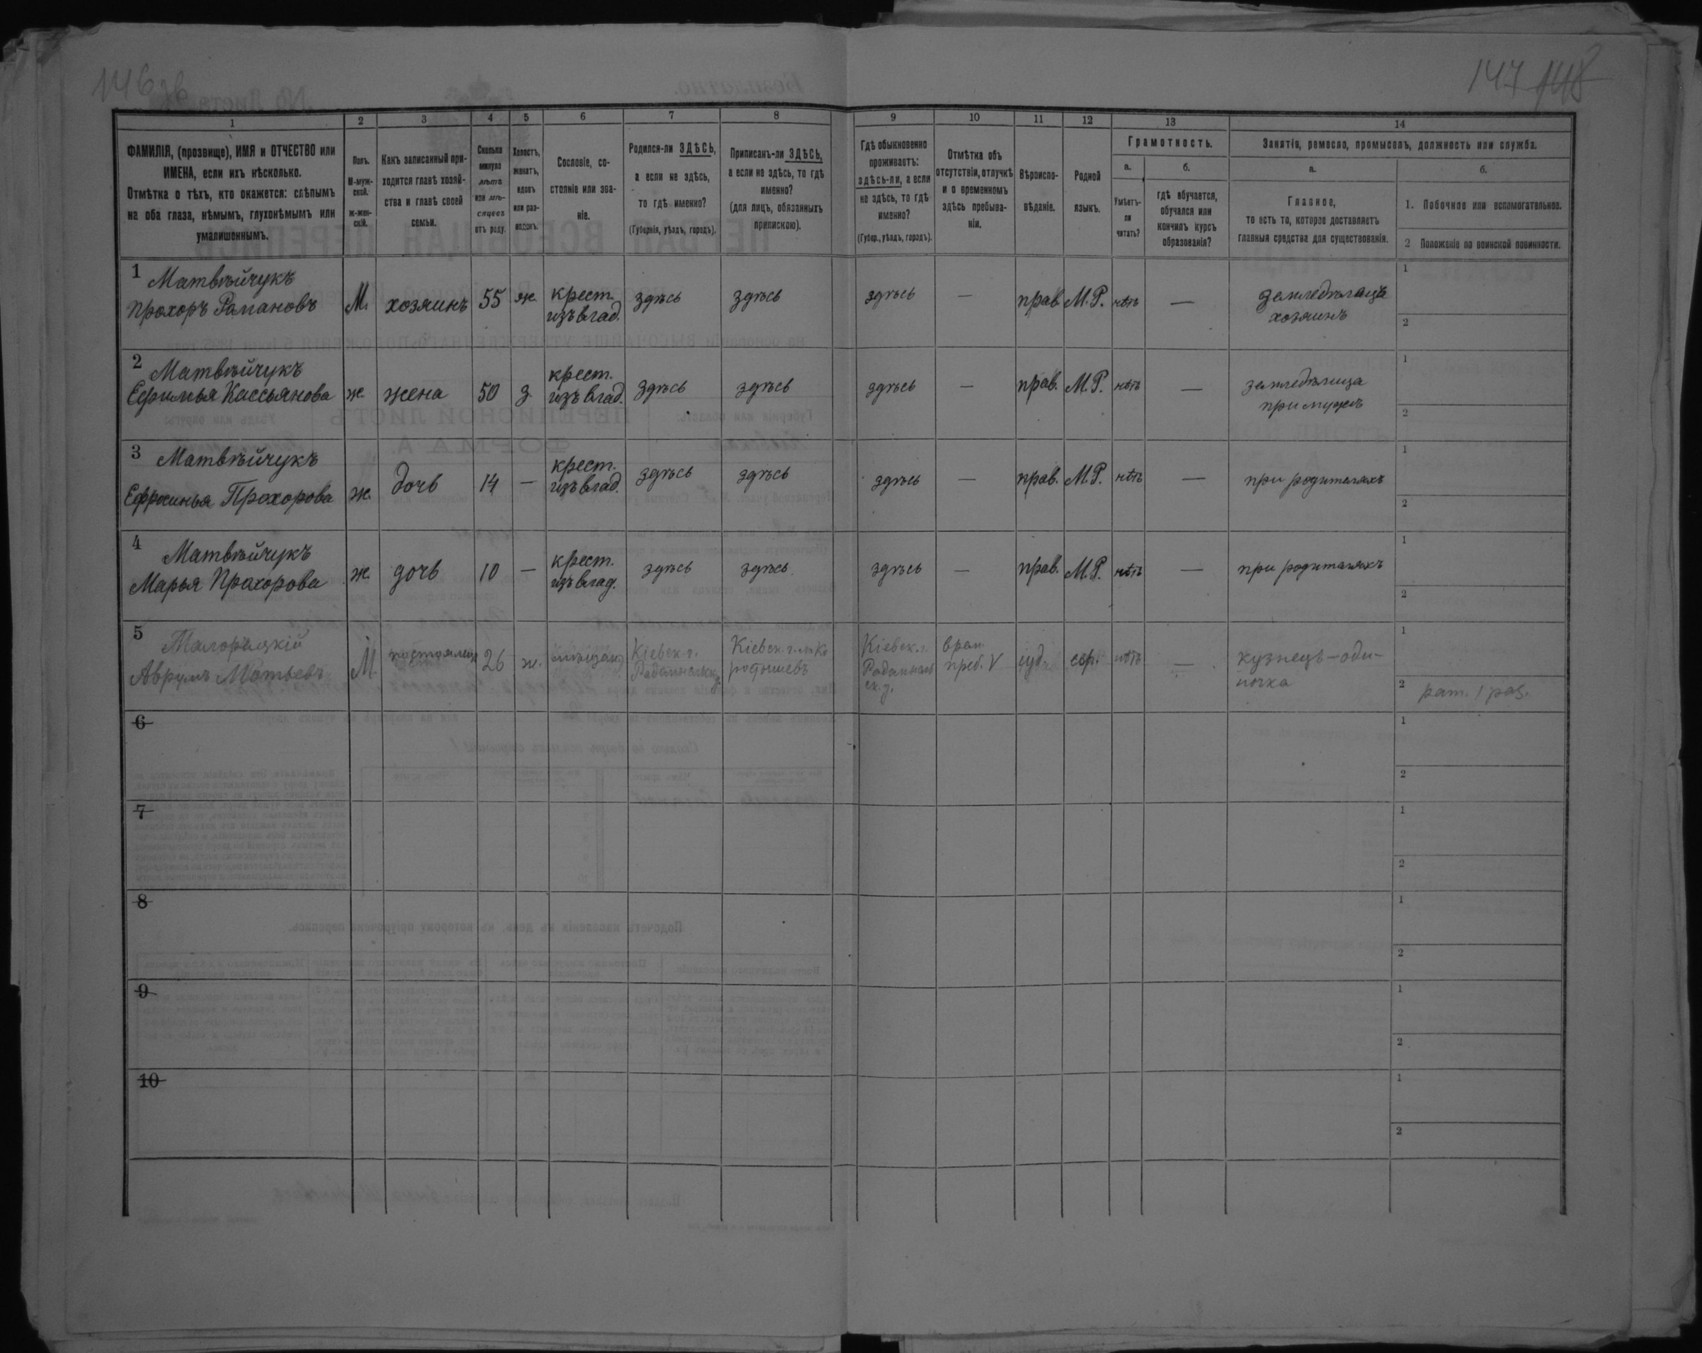 146 об
147 148
1 2 3 4 5 6 7 8 9 10 11 12 13 14
ФАМИЛІЯ, (прозвище), ИМЯ и ОТЧЕСТВО или
ИМЕНА, если ихъ нѣсколько.
Отмѣтка о тѣхъ, кто окажется: слѣпымъ
на оба глаза, нѣмымъ, глухонѣмымъ или
умалишеннымъ.
Полъ.
М-муж-
ской.
ж-жен-
скій.
Какъ записанный при-
ходится главѣ хозяй-
ства и главѣ своей
семьи.
Сколько
минуло
лѣтъ
или мѣ-
сяцевъ
отъ роду.
Холостъ,
женатъ,
вдовъ
или раз-
веденъ.
Сословіе, со-
стояніе или зва-
ніе.
Родился-ли ЗДѢСЬ,
а если не здѣсь,
то гдѣ именно?
(Губернія, уѣздъ, городъ).
Приписанъ-ли ЗДѢСЬ,
а если не здѣсь, то гдѣ
именно?
(для лицъ, обязанныхъ
припискою).
Гдѣ обыкновенно
проживаетъ:
здѣсь-ли, а если
не здѣсь, то гдѣ
именно?
(Губер., уѣздъ, городъ).
Отмѣтка объ
отсутствіи, отлучкѣ
и о временномъ
здѣсь пребыва-
ніи.
Вѣроиспо-
вѣданіе.
Родной
языкъ.
Грамотность.
а.
Умѣетъ-
ли
читать?
б.
гдѣ обучается,
обучался или
кончилъ курсъ
образованія?
Занятіе, ремесло, промыселъ, должность или служба.
а.
Главное,
то есть то, которое доставляетъ
главныя средства для существованія.
б.
1. Побочное или вспомогательное.
2 Положеніе по воинской повинности.
1 Матвѣйчукъ
Прохоръ Романовъ М. хозяинъ 55 ж. крест. изъ влад. здѣсь здѣсь здѣсь — прав. М.Р. нѣтъ — земледѣлецъ хозяинъ 1 2
2 Матвѣйчукъ
Ефимья Кассьянова ж. жена 50 з. крест. изъ влад. здѣсь здѣсь здѣсь — прав. М.Р. нѣтъ — земледѣлица при мужѣ 1 2
3 Матвѣйчукъ
Ефросинья Прохорова ж. дочь 14 — крест. изъ влад. здѣсь здѣсь здѣсь — прав. М.Р. нѣтъ — при родителяхъ 1 2
4 Матвѣйчукъ
Марья Прохорова ж. дочь 10 — крест. изъ влад. здѣсь здѣсь здѣсь — прав. М.Р. нѣтъ — при родителяхъ 1 2
5
Аврумъ М 26 ж. Кіевск. г. Кіевск. г. Кіевск. г. врем. преб. V іуд. евр. нѣтъ — кузнецъ-оди-
ночка 1 2 рат. 1 раз.
6 1 2
7 1 2
8 1 2
9 1 2
10 1 2